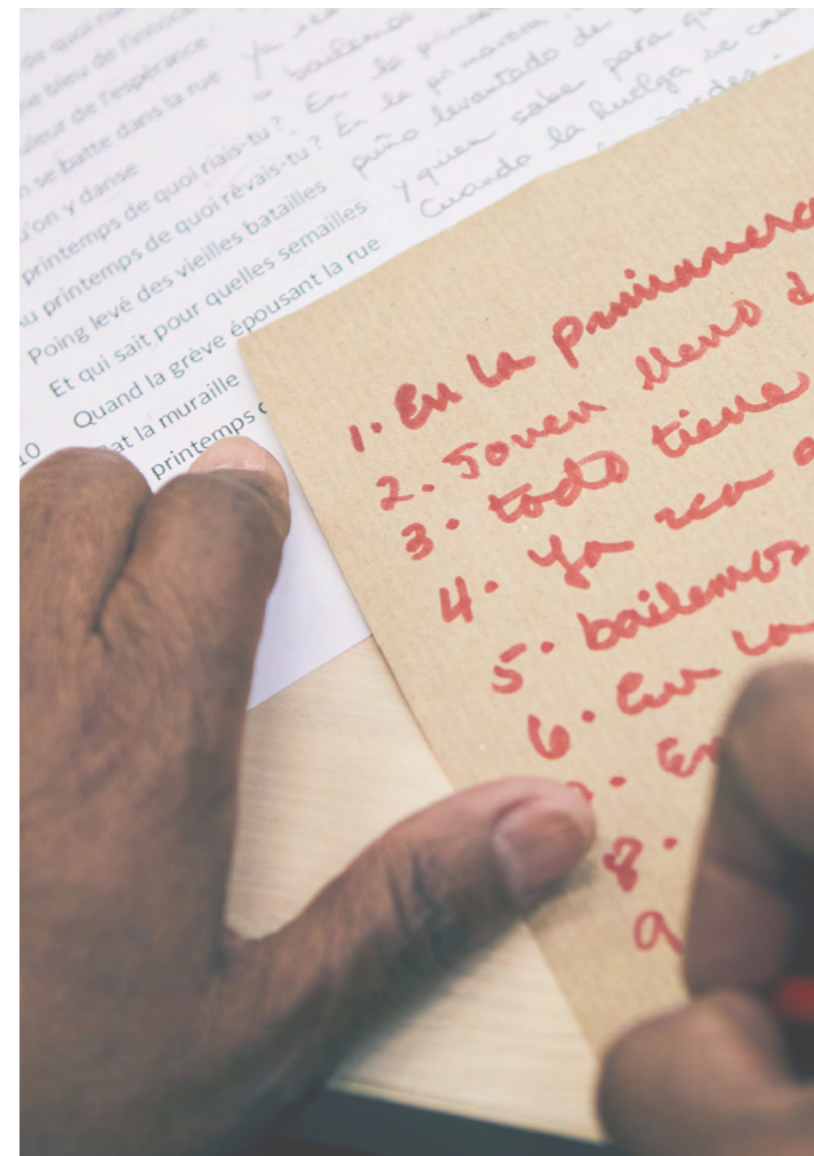 de quoi
bleu de l'innoce
uleur de l'espérance
n se batte dans la rue
u'on y danse
printemps de quoi riais-tu ?
u printemps de quoi rêvais-tu ?
Poing levé des vieilles batailles
Et qui sait pour quelles semailles
Quand la grève épousant la rue
10 at la muraille
printemps
Ya sea
bailemos
En la prima
En la primavera
puño levantado de
y quien sabe para qu
Cuando la huelga se cas
1. En la primavera
2. Joven lleno d
3. todo tiene
4. Ya sea
5. bailemos
6. En la
En
8.
9